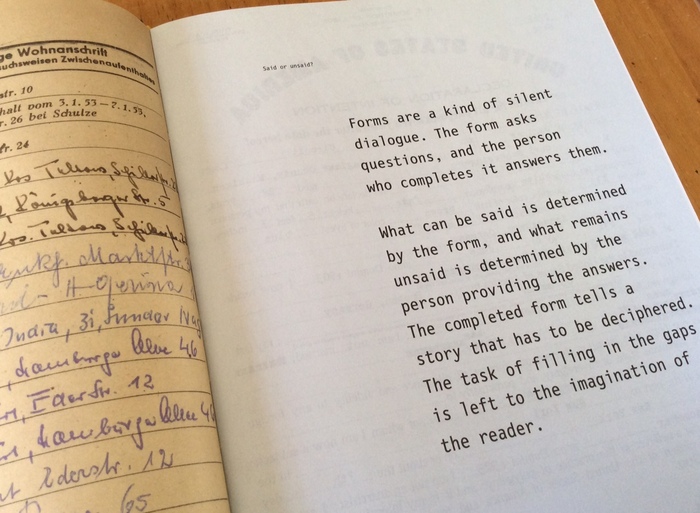 ge Wohnanschrift
uchsweisen Zwischenaufenthaltes
str. 10
halt vom 3.1.53 – 7.1.53,
r. 26 bei Schulze
tr. 24
Königsberger Str. 5
Marktstr.
India, 31, Sunder Nag
Hamburger Allee 46
Ederstr. 12
Hamburger Allee 46
Ederstr. 12
65
Said or unsaid?
Forms are a kind of silent
dialogue. The form asks
questions, and the person
who completes it answers them.
What can be said is determined
by the form, and what remains
unsaid is determined by the
person providing the answers.
The completed form tells a
story that has to be deciphered.
The task of filling in the gaps
is left to the imagination of
the reader.